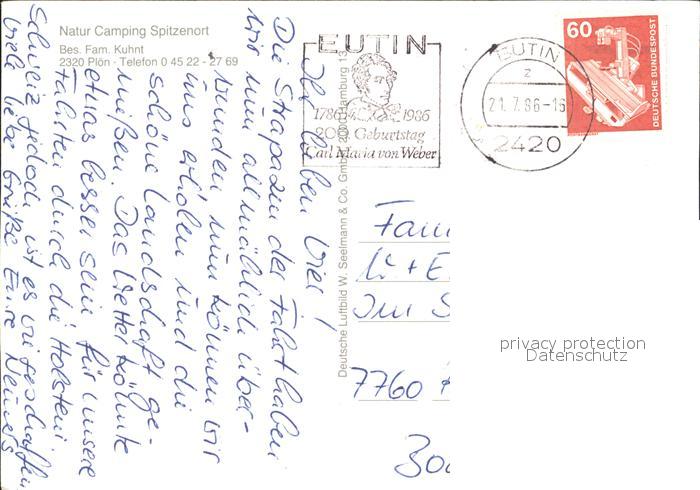 Natur Camping Spitzenort
Bes. Fam. Kuhnt
2320 Plön · Telefon 0 45 22 - 27 69
EUTIN
1786 1986
200. Geburtstag
Carl Maria von Weber
EUTIN
z
21.7.86-16
2420
60
DEUTSCHE BUNDESPOST
Deutsche Luftbild W. Seelmann & Co. GmbH, 2000 Hamburg 13
Ihr lieben Vier!
Die Strapazen der Fahrt haben
wir nun allmählich über-
wunden nun können wir
uns erholen und die
schöne Landschaft ge-
nießen. Das Wetter könnte
etwas besser sein für unsere
Fahrten durch die Holstein.
Schweiz jedoch ist es wie geschaffen
Viele liebe Grüße Eure
Fam
U + E
Im S
7760
Bo
privacy protection
Datenschutz